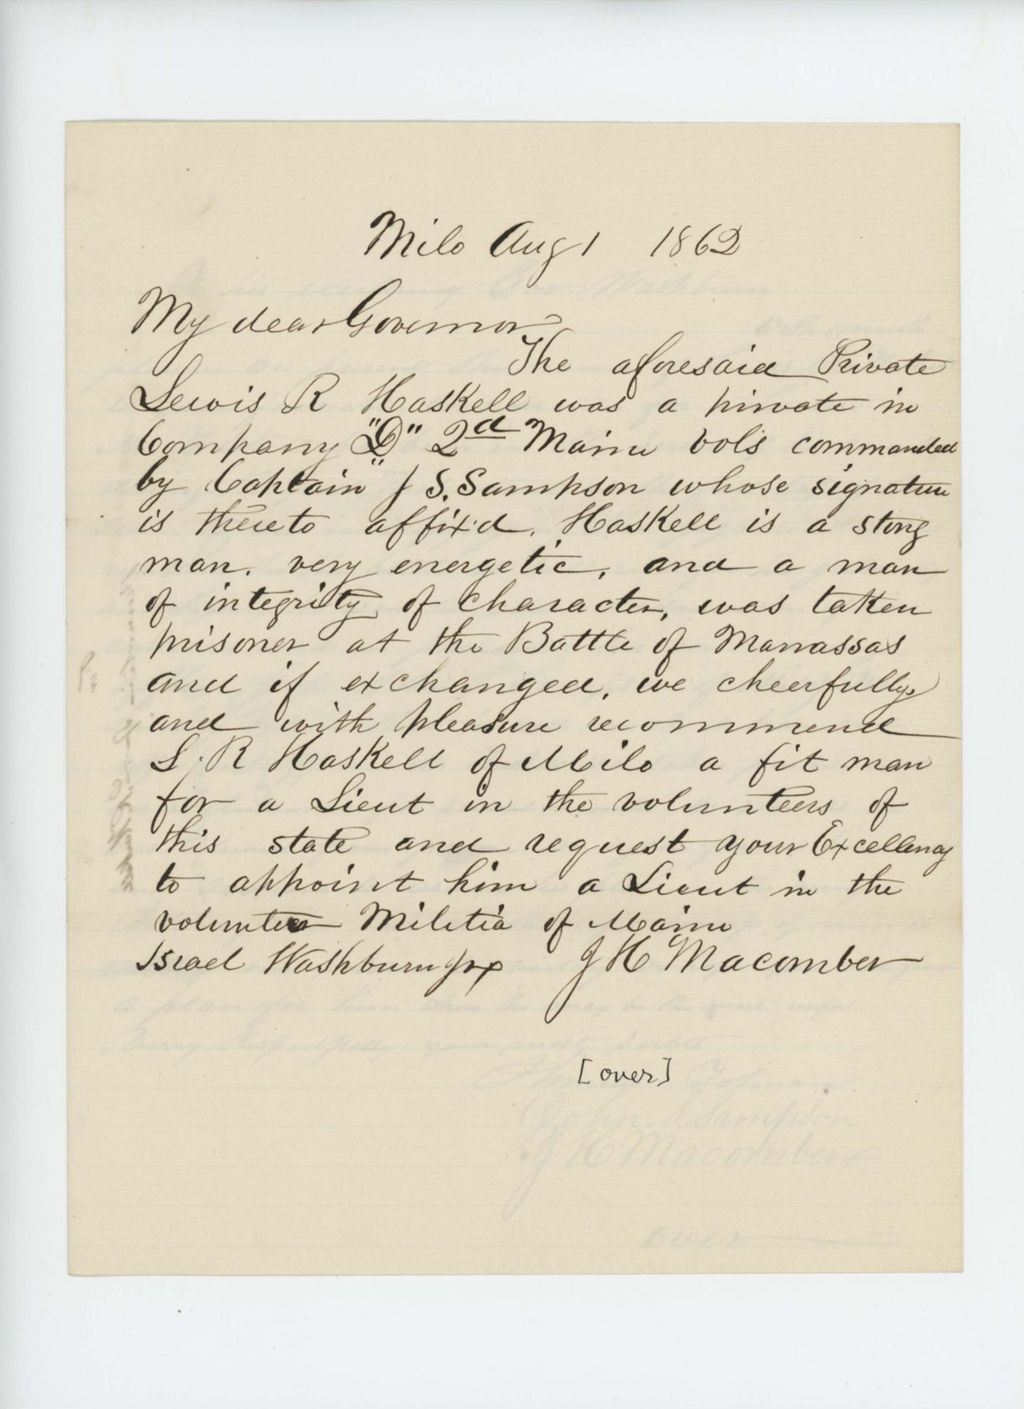 Milo Aug 1 1862
My dear Governor
The aforesaid Private
Lewis R Haskell was a private in
Company "D" 2d Maine vols commanded
by Captain J S. Sampson whose signature
is thereto affix'd. Haskell is a strong
man, very energetic, and a man
of integrity of character, was taken
prisoner at the Battle of Manassas
and if exchanged, we cheerfully
and with pleasure recommend
L. R Haskell of Milo a fit man
for a Lieut in the volunteers of
this state and request your Excellency
to appoint him a Lieut in the
volunteer Militia of Maine
Israel Washburn Jr J H Macomber
[over]
John S. Sampson
J H Macomber
over